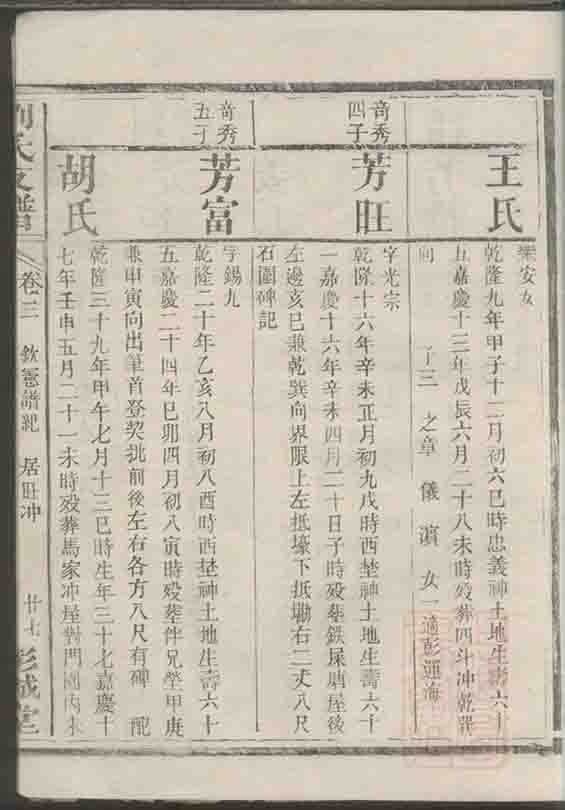 王氏
樂安女
乾隆九年甲子十二月初六巳時忠義神土地生壽六十
五嘉慶十三年戊辰六月二十八未時歿葬四斗冲乾巽
向　子三　之章　儀　濵　女一適彭運海
奇秀四子
芳旺
字光宗
乾隆十六年辛未正月初九戌時西埜神土地生壽六十
一嘉慶十六年辛未四月二十日子時歿葬鉄屎塘屋後
左邊亥巳兼乾巽向界限上左抵壕下抵墈右二丈八尺
石圍碑記
奇秀五子
芳富
字錫九
乾隆二十年乙亥八月初八酉時西埜神土地生壽六十
五嘉慶二十四年巳卯四月初八寅時歿葬伴兄塋甲庚
兼申寅向出筆首登契批前後左右各方八尺有碑　配
胡氏
乾隆三十九年甲午七月十三巳時生年三十七嘉慶十
七年壬申五月二十一未時歿葬馬家冲屋對門園内未
劉氏支譜　卷三　欽憲譜紀　居旺冲　廿七　彭城堂